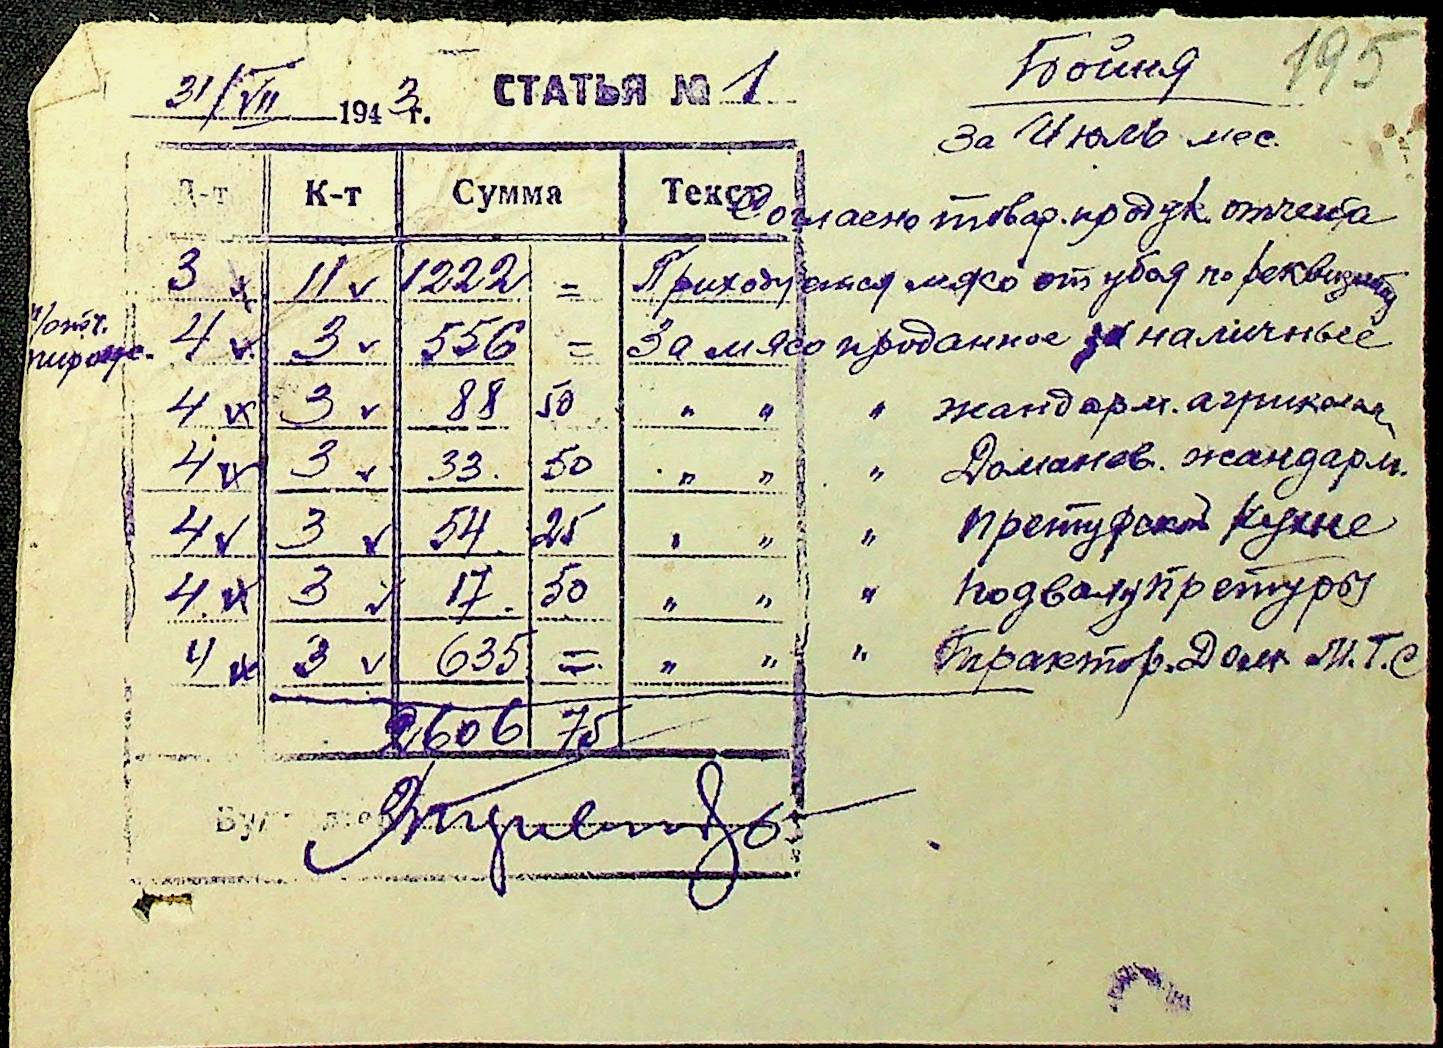 195
Бойня
31/VII 1943 г. СТАТЬЯ № 1
за Июль мес.
Д-т К-т Сумма Текст
Согласно товар. продук. отчета
3 11 1222 = Приходуется мясо от убоя по реквизиту
4 3 556 = За мясо проданное за наличные
4 3 88 50 " " " жандарм.
4 3 33. 50 " " " Доманев. жандарм.
4 3 54 25 " " " Претурской кухне
4 3 17. 50 " " " подвалу претуры
4 3 635 = " " " Трактор. Дом. М.Т.С
2606 75